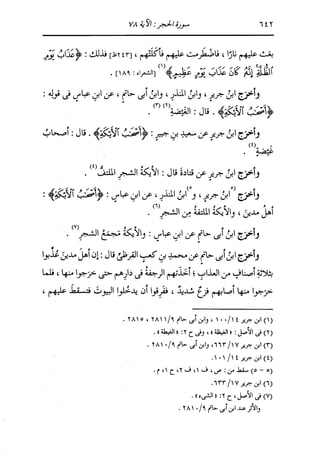 ٦٤٢ سورة الحجر : الآية ٧٨
بعَث عليهم نارًا ، فاضطرمت عليهم فأكلتهم ، [٢٤٣ظ] فذلك : ﴿عَذَابُ يَوْمِ
ٱلظُّلَّةِ إِنَّهُ كَانَ عَذَابَ يَوْمٍ عَظِيمٍ﴾ (١) [الشعراء : ١٨٩] .
وأخرَج ابنُ جريرٍ ، وابنُ المنذرِ ، وابنُ أبى حاتمٍ ، عن ابنِ عباسٍ فى قولِه :
﴿أَصْحَٰبُ ٱلْأَيْكَةِ﴾ . قال : الغَيْضةِ (٢) (٣) .
وأخرَج ابنُ جريرٍ عن سعيدِ بنِ جبيرٍ : ﴿أَصْحَٰبُ ٱلْأَيْكَةِ﴾ . قال : أصحابُ
غَيْضةٍ (٤) .
وأخرَج ابنُ جريرٍ عن قتادةَ قال : الأيكةُ الشجرُ الملتفُّ (٤) .
وأخرَج (٥ ابنُ جريرٍ ، و٥) ابنُ المنذرِ ، عن ابنِ عباسٍ : ﴿أَصْحَٰبُ ٱلْأَيْكَةِ﴾ :
أهلُ مدينَ ، والأيكةُ الملتفةُ من الشجرِ (٦) .
وأخرَج ابنُ أبى حاتمٍ عن ابنِ عباسٍ : والأيكةُ مَجمَعُ الشجرِ (٧) .
وأخرَج ابنُ أبى حاتمٍ عن محمدِ بنِ كعبٍ القرظىِّ قال : إن أهلَ مدينَ عُذِّبوا
بثلاثةِ أصنافٍ من العذابِ ؛ أخَذتهم الرجفةُ فى دارِهم حتى خرَجوا منها ، فلما
خرَجوا منها أصابهم فزعٌ شديدٌ ، ففَرِقوا أن يدخُلوا البيوتَ فتسقُطَ عليهم ،
(١) ابن جرير ١٤/ ١٠٠، وابن أبى حاتم ٩/ ٢٨١١، ٢٨١٥ .
(٢) فى الأصل : «الغيظة» ، وفى ح ٢ : «الغبطة» .
(٣) ابن جرير ١٧/ ٦٦٣، وابن أبى حاتم ٩/ ٢٨١٠ .
(٤) ابن جرير ١٤/ ١٠١ .
(٥ - ٥) سقط من : ص ، ف ١، ف ٢، ح ١، م .
(٦) ابن جرير ١٧/ ٦٣٣ .
(٧) فى الأصل ، ح ٢ : «الشىء» .
والأثر عند ابن أبى حاتم ٩/ ٢٨١٠ .